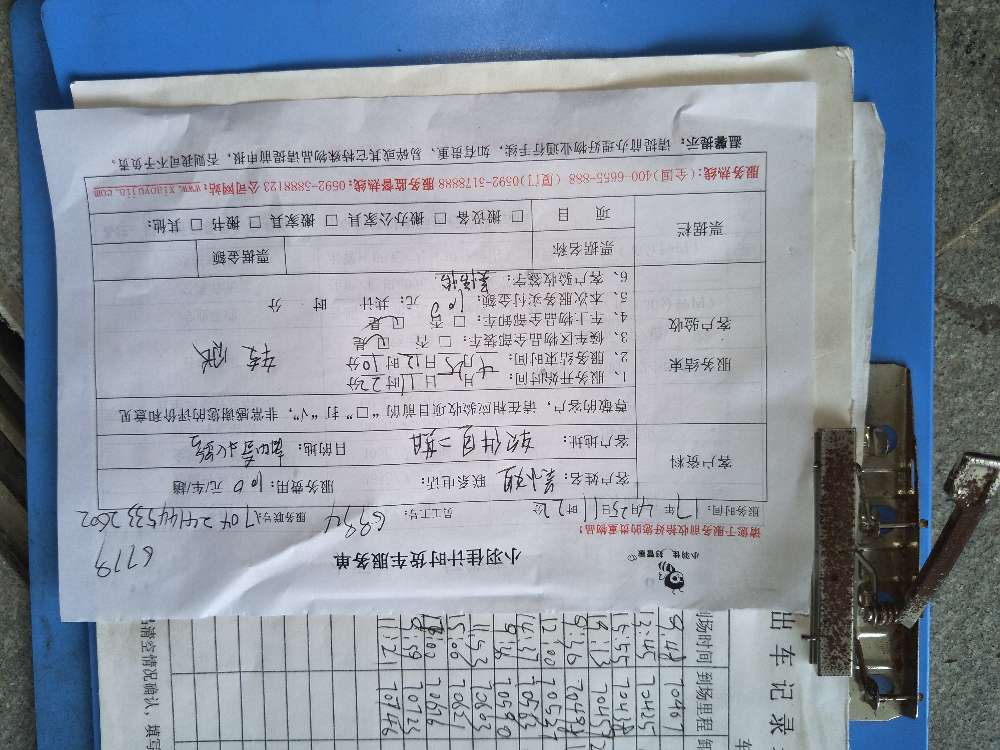 小羽佳 好管家
小羽佳计时货车服务单
6779
请您于服务前收拾好您的贵重物品！
服务时间：17年4月25日11时22分 员工工号：6994 服务联号
客户资料
客户姓名：吴小姐 联系电话： 服务费用：100元/车/趟
客户地址：软件园二期 目的地：
尊敬的客户，请在相应验收项目前的“□”打“√”，非常感谢您的评价和意见
服务结束
客户验收
1、服务开始时间：4月25日11时22分
2、服务结束时间：4月25日12时10分
3、候车区物品全部装车：□是 □否
4、车上物品全部卸车：□是 □否
5、本次服务实付金额：100元；共计 时 分
6、客户验收签字：
转账
票据栏
票据名称 票据金额
项目 □搬设备 □搬办公家具 □搬家具 □搬书 □其他：
服务热线：(全国)400-6655-888 (厦门)0592-3178888 服务监督热线：0592-5888123 公司网站：www.xiaoyujia.com
温馨提示：请提前办理好物业通行手续，如有贵重、易碎或其它特殊物品请提前申报，否则我司不予负责。
出车记录
到场时间 到场里程
12:45 70425
15:55 70438
9:36
12:00 70524
14:37 70563
9:46 70590
11:53 70603
15:06 70621
8:59 70723
11:21 70746
清空情况确认，填写